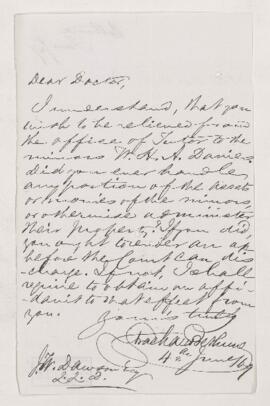 Dear Doctor,
I understand, that you
wish to be relieved from
the office of Tutor to the
minors W. H. A. Davies
did you ever handle
any portion of the assets
or monies of the minors
or otherwise administer
their property, If you did
you ought to render an
before the Court can dis-
charge. If not, I shall
require to obtain an affi-
davit to that effect from
you.
Yours truly
4 June/69
J.W. Dawson
L.L.D.